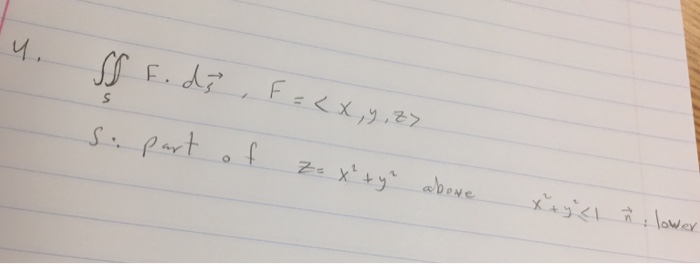 4. ∬_S F · ds⃗ , F = <x, y, z>
S: part of z = x² + y² above x² + y² < 1 n⃗ : lower